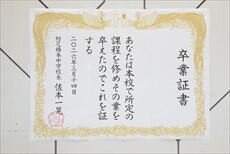 卒業証書
あなたは本校で所定の
課程を修めその業を
卒えたのでこれを証
する
二〇二六年三月十四日
初芝橋本中学校長 佐本一